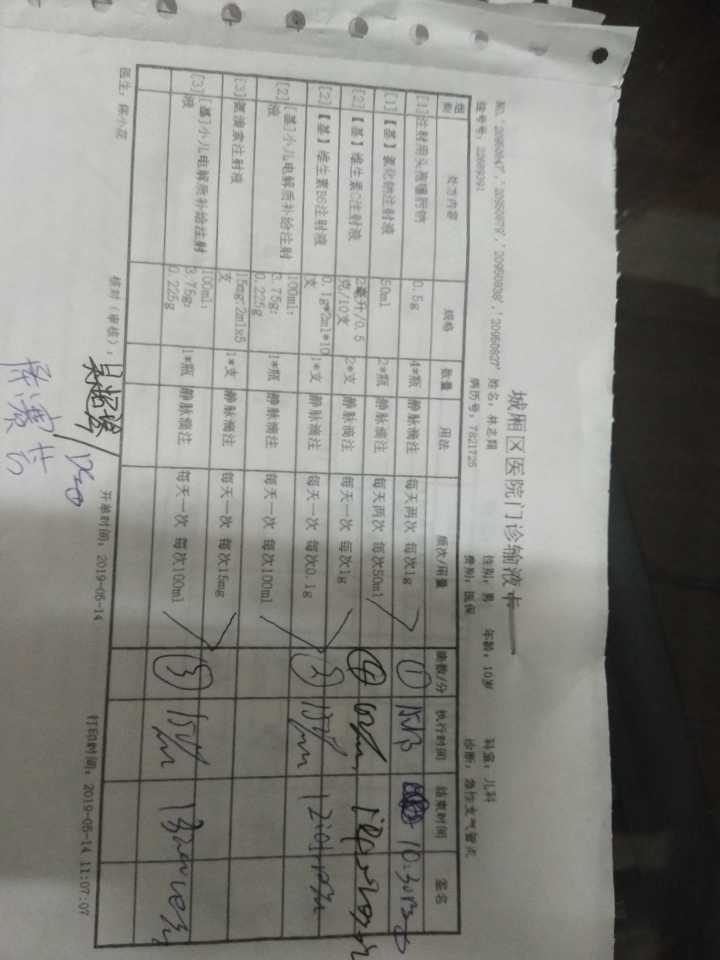 城厢区医院门诊输液卡
NO. '20950847', '20950879', '20950838', '20950827' 姓名：林志翔 性别：男 年龄：10岁 科室：儿科
挂号号：22689391 病历号：7821725 费别：医保 诊断：急性支气管炎
组别 处方内容 规格 数量 用法 频次/用量 滴数/分 执行时间 结束时间 签名
[1] 注射用头孢噻肟钠 0.5g 4*瓶 静脉滴注 每天两次 每次1g ①
[1] 【基】氯化钠注射液 50ml 2*瓶 静脉滴注 每天两次 每次50ml
[2] 【基】维生素C注射液 2毫升/0.5克/10支 2*支 静脉滴注 每天一次 每次1g ④
[2] 【基】维生素B6注射液 0.1g*2ml*10支 1*支 静脉滴注 每天一次 每次0.1g ②
[2] [基]小儿电解质补给注射液 100ml：3.75g：0.225g 1*瓶 静脉滴注 每天一次 每次100ml
[3] 氨溴索注射液 15mg:2mlx5支 1*支 静脉滴注 每天一次 每次15mg
[3] [基]小儿电解质补给注射液 100ml：3.75g：0.225g 1*瓶 静脉滴注 每天一次 每次100ml ③
医生：陈小花 核对（审核）： 开单时间：2019-05-14 打印时间：2019-05-14 11:07:07